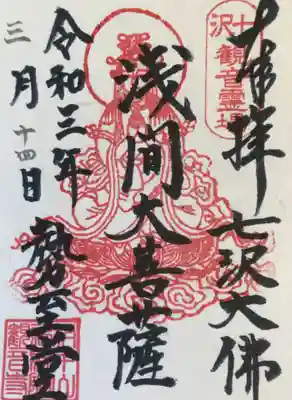 奉拝
七沢大佛
浅間大菩薩
令和三年
三月十四日
勢至堂
七沢
観音霊場